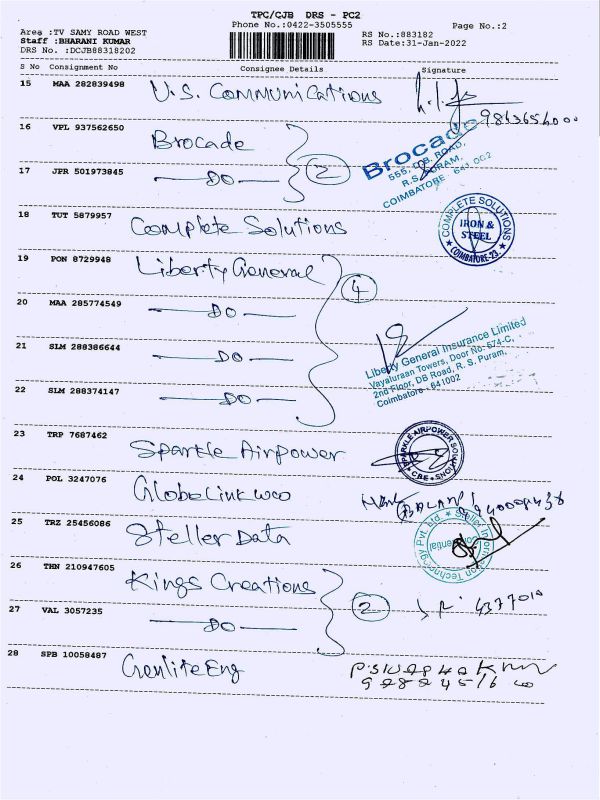 TPC/CJB DRS - PC2
Phone No.:0422-3505555
Page No.:2
Area :TV SAMY ROAD WEST
Staff :BHARANI KUMAR
DRS No. :DCJB88318202
RS No.:883182
RS Date:31-Jan-2022
S No Consignment No Consignee Details Signature
15 MAA 282839498 U.S. Communications
16 VPL 937562650 Brocade
Brocade
555, D.B. ROAD,
R.S. PURAM,
COIMBATORE 641 002
17 JPR 501973845 DO 2
18 TUT 5879957 Complete Solutions
COMPLETE SOLUTIONS
IRON &
STEEL
COIMBATORE-23
19 PON 8729948 Liberty General 4
20 MAA 285774549 DO
21 SLM 288386644 DO
Liberty General Insurance Limited
Vayaluraan Towers, Door No. 574-C,
2nd Floor, DB Road, R. S. Puram,
Coimbatore - 641002
22 SLM 288374147 DO
23 TRP 7687462 Sparkle Airpower
SPARKLE AIRPOWER SOLUTIONS
CBE
24 POL 3247076 Globelink WW
25 TRZ 25456086 Steller Data
Steller Information Technology Pvt. Ltd.
26 THN 210947605 Kings Creations
27 VAL 3057235 DO 2
28 SPB 10058487 Genlite Eng